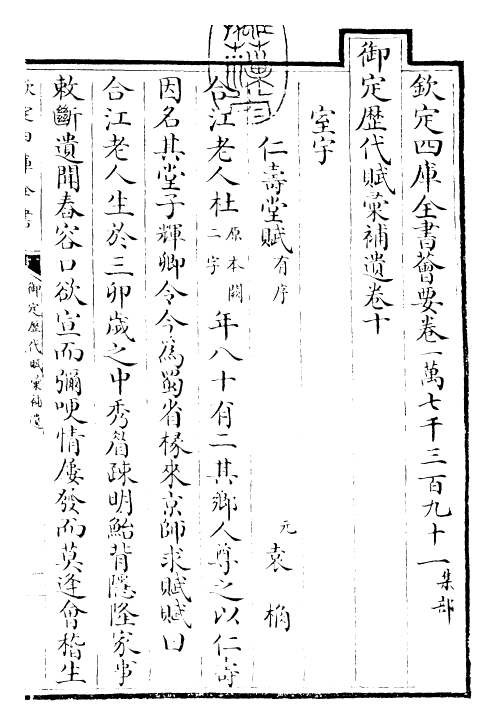 欽定四庫全書薈要卷一萬七千三百九十一集部
御定歷代賦彚補遺卷十
室宇
仁壽堂賦有序
元袁桷
合江老人杜原本闕二字年八十有二其鄉人尊之以仁壽
因名其堂子輝卿令今為蜀省椽來京師求賦賦曰
合江老人生於三卯歲之中秀眉疎明鮐背隱隆家事
敕斷遺閒舂容口欲宣而彌哽情屢發而莫逢會稽生
欽定四庫全書
御定歷代賦彚補遺